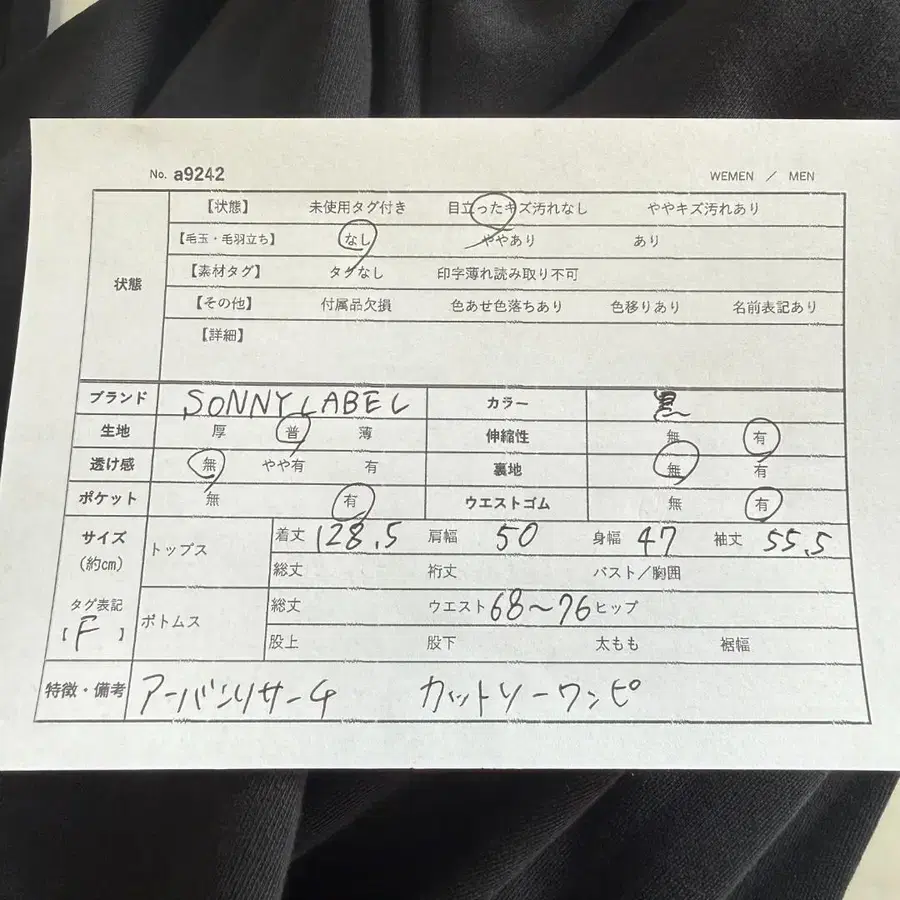 No. a9242 WEMEN / MEN
状態 【状態】 未使用タグ付き 目立ったキズ汚れなし ややキズ汚れあり
【毛玉・毛羽立ち】 なし ややあり あり
【素材タグ】 タグなし 印字薄れ読み取り不可
【その他】 付属品欠損 色あせ色落ちあり 色移りあり 名前表記あり
【詳細】
ブランド SONNY LABEL カラー 黒
生地 厚 普 薄 伸縮性 無 有
透け感 無 やや有 有 裏地 無 有
ポケット 無 有 ウエストゴム 無 有
サイズ (約cm) トップス 着丈 128.5 肩幅 50 身幅 47 袖丈 55.5
総丈 裄丈 バスト/胸囲
タグ表記 【F】 ボトムス 総丈 ウエスト 68〜76 ヒップ
股上 股下 太もも 裾幅
特徴・備考 アーバンリサーチ カットソーワンピ